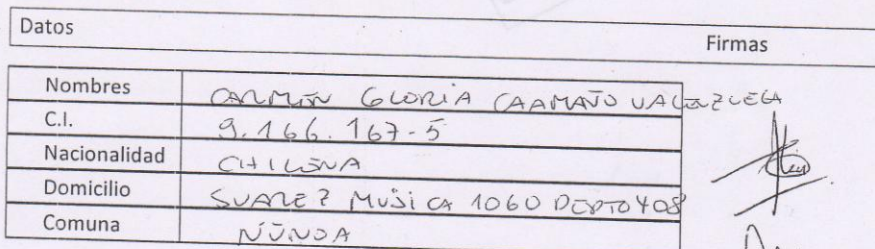 Datos Firmas
Nombres CARMEN GLORIA CAAMAÑO VALENZUELA
C.I. 9.166.167-5
Nacionalidad CHILENA
Domicilio SUAREZ MUJICA 1060 DEPTO 408
Comuna ÑUÑOA